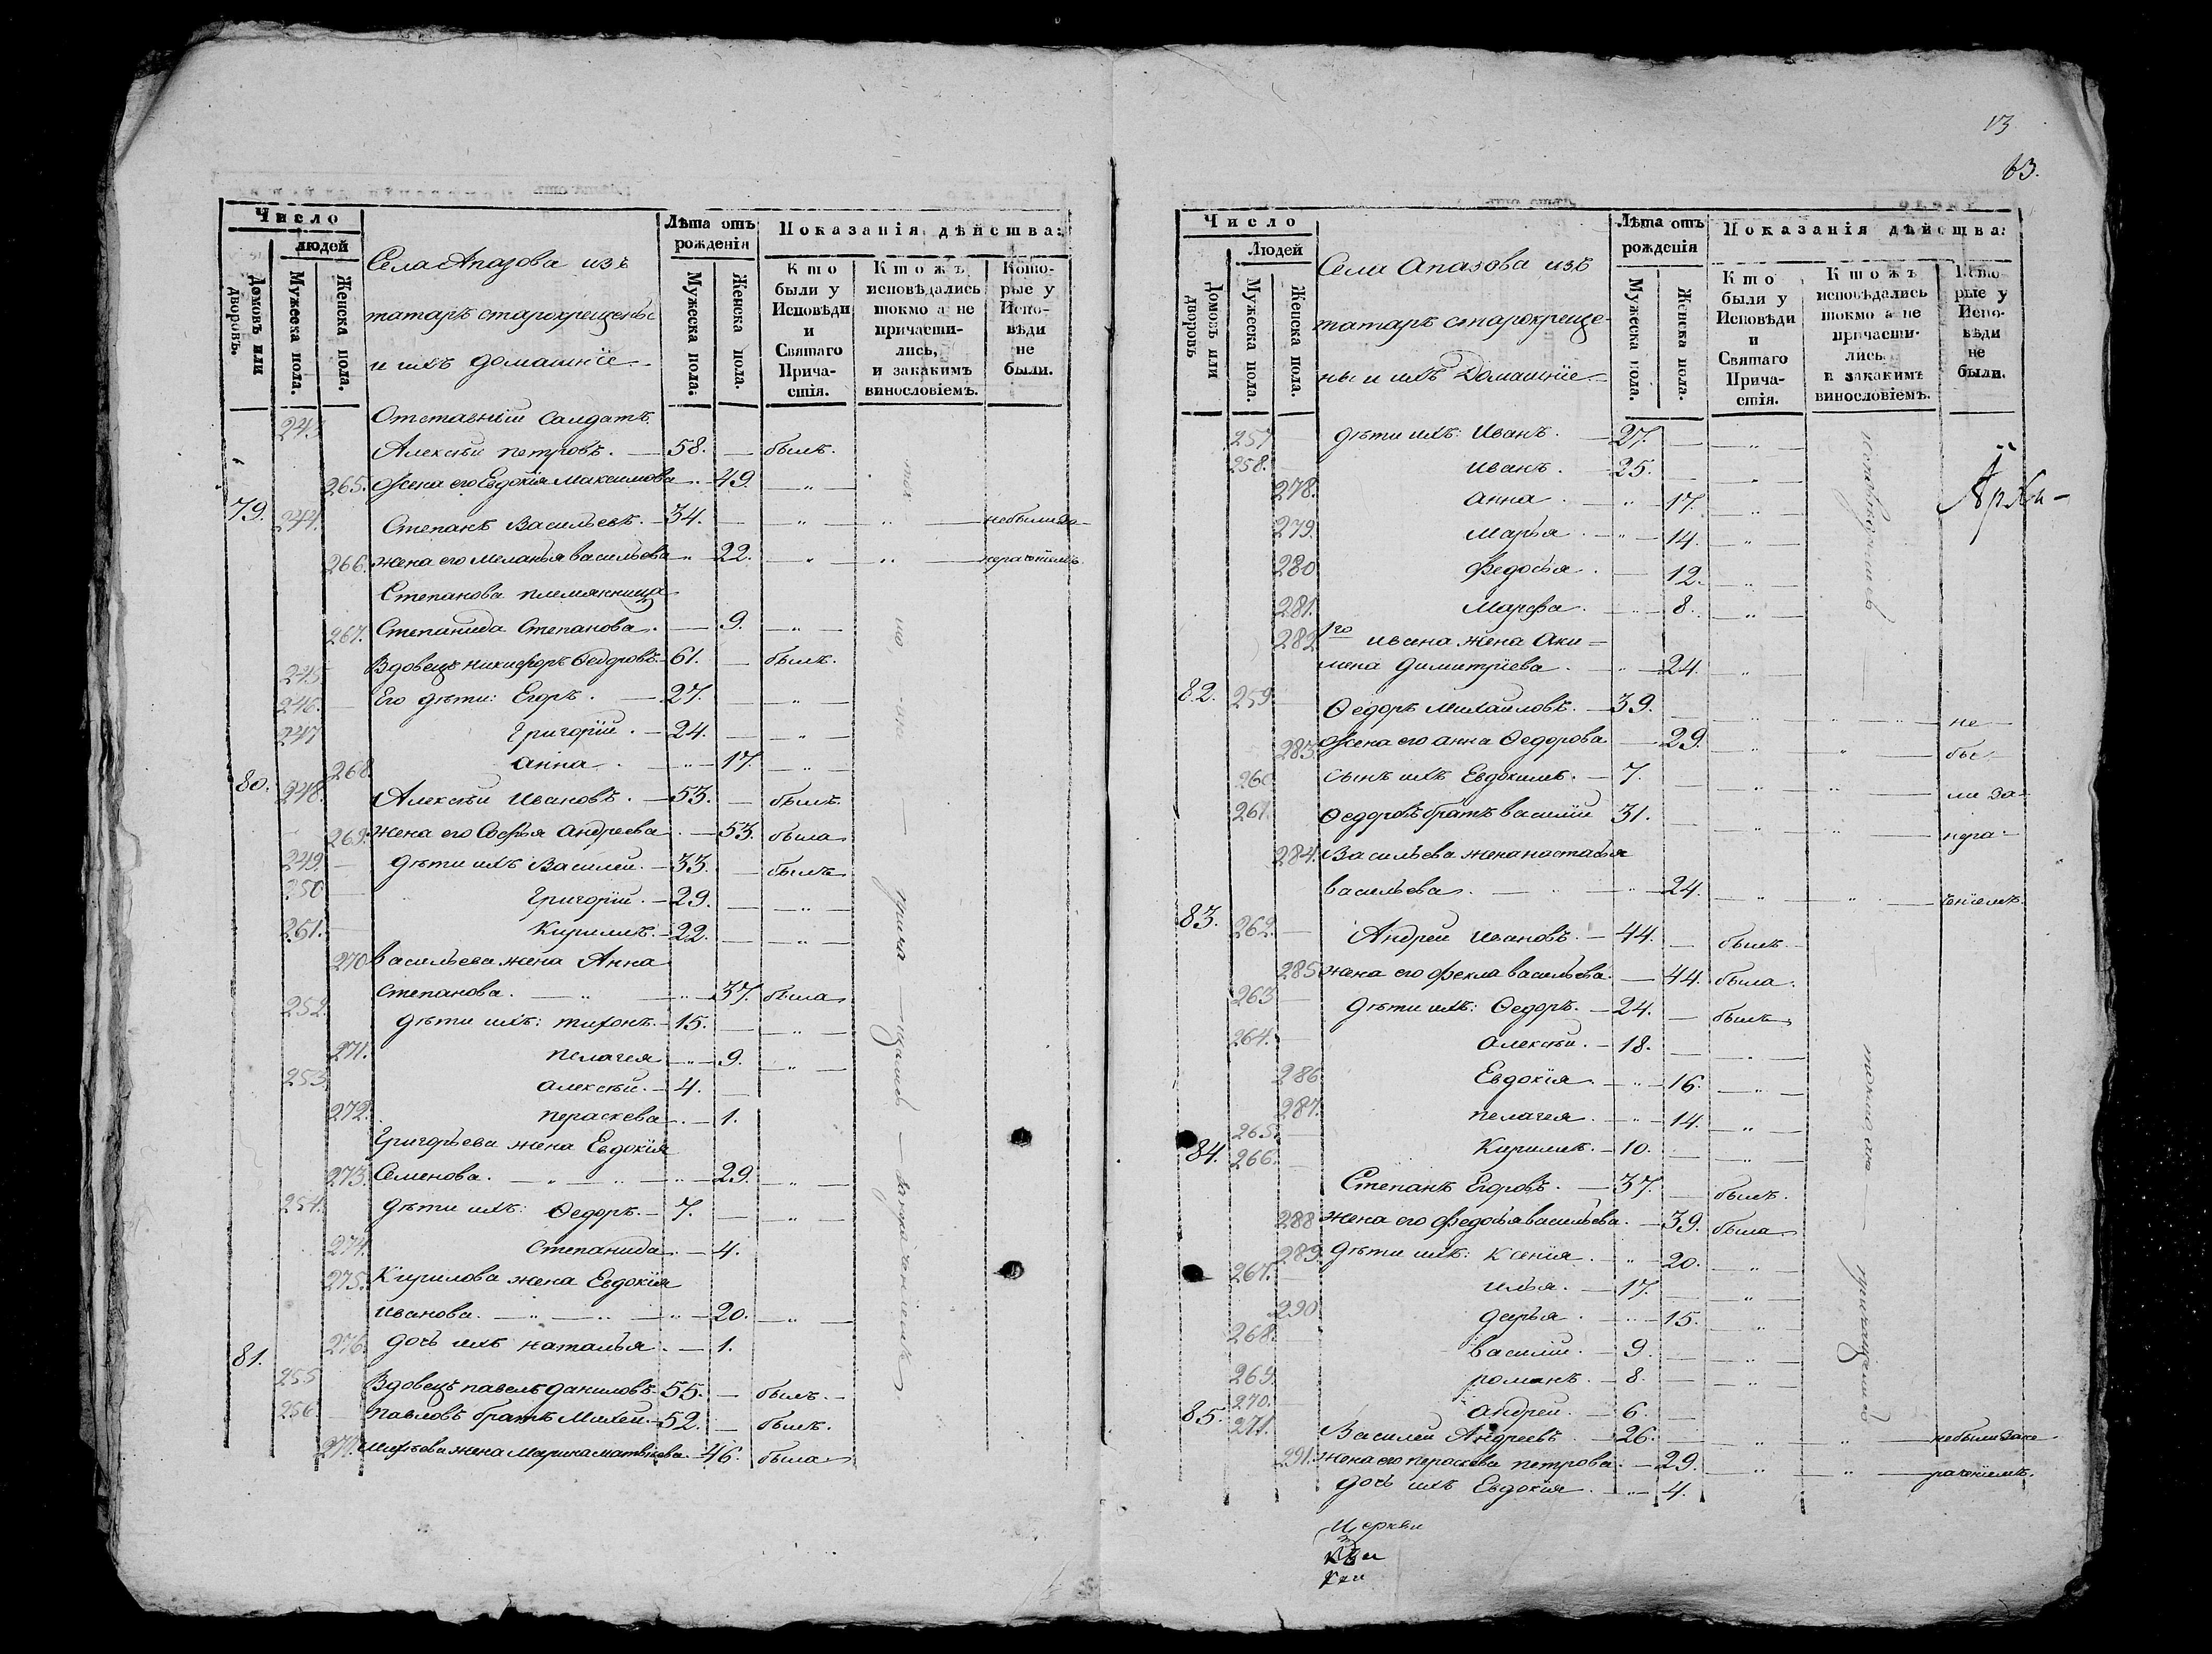 13
63.
Число
людей
Домовъ или дворовъ.
Мужеска пола.
Женска пола.
Села Апазова изъ
татаръ старокрещены
и ихъ домашніе
Лѣта отъ рожденія
Мужеска пола.
Женска пола.
Показанія дѣйства:
Кто были у Исповѣди и Святаго Прича-стія.
Ктожъ исповѣдались токмо а не причасти-лись, и закакимъ винословіемъ.
Кото-рые у Испо-вѣди не были.
243 Отставный Салдатъ
Алексѣй петровъ. — 58. — былъ.
265. Жена его Евдокія Максимова — 49. — „ —
79. 244. Степанъ Васильевъ. — 34. — „ „ — небыли за-
266. жена его меланья васильева „ — 22. — „ „ — нерачѣніемъ
Степанова племянница
267. Степанида Степанова. — 9. — „ —
245. Вдовецъ никифоръ Ѳедоровъ. — 61. — былъ.
246. Его дѣти: Егоръ. — 27. — „ —
247 Григорій. — 24. — „ —
268. анна. „ — 17. — „ —
80. 248. Алексѣй Ивановъ. — 53. — былъ.
269. жена его Софья андреева. — 53. была
249. — дѣти ихъ Василей. — 33. — былъ
250 — Григорій. — 29. — „ —
251. — Кирилъ. — 22. — „ —
270 васильева жена Анна
степанова. — „ — 37. была
252. дѣти ихъ: тихонъ. — 15. — „ —
271. пелагея „ — 9. — „ —
253. алексѣй. — 4. —
272. пераскева. — 1.
Григорьева жена Евдокія
273. Семенова. — „ — „ — 29. — „ —
254. дѣти ихъ: Ѳедоръ. — 7. — „ —
274. степанида. — 4.
275. Кирилова жена Евдокія
иванова. — „ — „ — 20. — „ —
81. 276. дочь ихъ наталья. — 1.
255 Вдовецъ павелъ даниловъ. 55. — былъ. —
256. — павловъ братъ Михей. — 52. — былъ.
277. Михѣева жена Марина матвѣева. — 46. была
Число
Людей
Домовъ или дворовъ
Мужеска пола.
Женска пола.
Села Апазова изъ
татаръ старокреще-
ны и ихъ Домашніе —
Лѣта отъ рожденія
Мужеска пола.
Женска пола.
Показанія дѣйства:
Кто были у Исповѣди и Святаго Прича-стія.
Ктожъ исповѣдались токмо а не причасти-лись. и закакимъ винословіемъ.
Кото-рые у Испо-вѣди не были.
257 дѣти ихъ: Иванъ. — 27. — „ —
258. иванъ. — 25. —
278. анна. „ — 17. — „ —
279. марья. — „ — 14. — „ —
280 федосья. — 12. — „ —
281. марфа. — „ — 8. — „ —
282 1го ивана жена Аки-
лина димитріева. — „ — 24. — „ —
82. 259. Ѳедоръ михаиловъ. — 39. — „ „ — не —
283. Жена его анна Ѳедорова — 29. — „ „ — бы-
260 сынъ ихъ Евдокимъ. — 7. — „ „ — ли за-
261. Ѳедоровъ братъ василій 31. — „ „ — нера-
284. Васильева жена настасья
васильева. — „ — 24. — „ „ — ченіемъ.
83. 262. — Андрей ивановъ. — 44. — былъ.
285 жена его фекла васильева. — 44. была.
263 — дѣти ихъ: Ѳедоръ. — 24. — былъ
264. — алексѣй. — 18. — „ —
286 Евдокія. — „ — 16. — „ —
287. пелагея. — „ — 14. — „ —
265. — Кирилъ. — 10. — „ —
84. 266. — Степанъ Егоровъ. — 37. — былъ.
288 жена его федосья васильева. — 39. была
289. дѣти ихъ: ксенія. — „ — 20. — „ —
267. — илья. — 17. — „ —
290. дарья. — „ — 15. — „ —
268. — василій. — 9. — „ —
269. романъ. — 8. — „ —
270. — андрей. — 6. —
85. 271. Василей Андреевъ. — 26. — „ „ — небыли зане-
291. жена его пераскева петрова. — 29. — „ „ — раченіемъ.
дочь ихъ Евдокія. — „ — 4.
Церкви